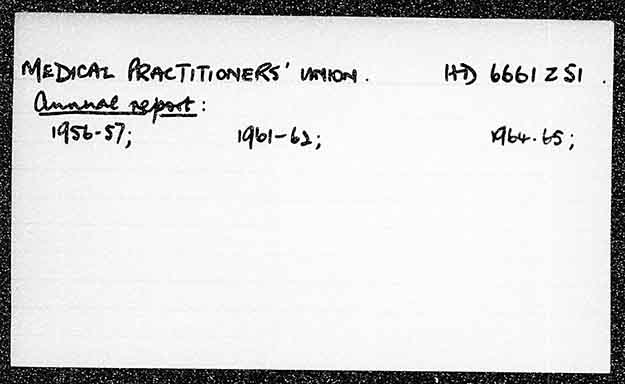 MEDICAL PRACTITIONERS' UNION. HD 6661 Z S1.
Annual report:
1956-57; 1961-62; 1964-65;